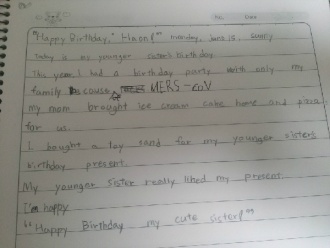 "Happy Birthday," Haon!" monday, June 15, sunny
Today is my younger sister's birthday
This year, I had a birthday party with only my
family because MERS-CoV
my mom brought ice cream cake home and pizza
for us.
I bought a toy sand for my younger sisters
birthday present.
My younger sister really liked my present.
I'm happy
"Happy Birthday my cute sister!"